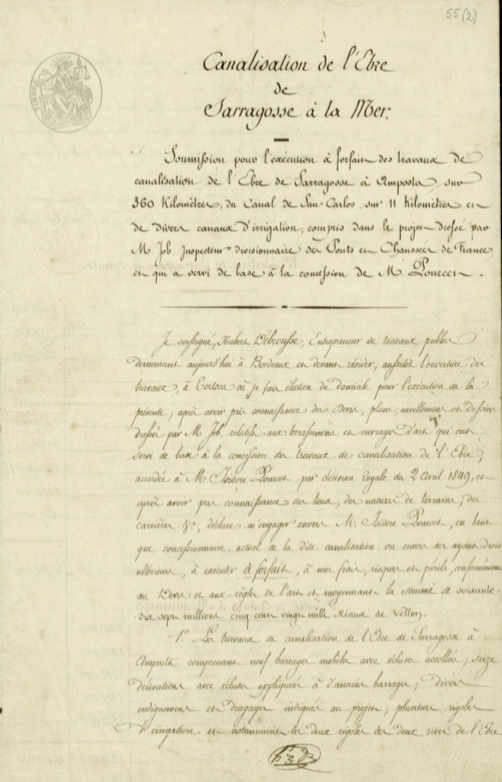 55 (2)
Canalisation de l'Ebre
de
Sarragosse à la Mer.
Soumission pour l'exécution à forfait des travaux de
canalisation de l'Ebre de Sarragosse à Amposta, sur
360 Kilomètres, du Canal de San Carlos, sur 11 Kilomètres et
de divers canaux d'irrigation, compris dans le projet dressé par
M. Job Inspecteur divisionnaire des Ponts et Chaussées de France
et qui a servi de base à la concession de M. Pourcet.
Je soussigné, Hubert Débrousse, Entrepreneur de travaux publics
demeurant aujourd'hui à Bordeaux et devant résider, aussitôt l'ouverture des
travaux, à Tortosa où je fais élection de domicile pour l'exécution de la
présente; après avoir pris connaissance des Devis, plans, nivellemens et Dessins
dressés par M. Job, relatifs aux terrassemens et ouvrages d'art qui ont
servi de base à la concession des travaux de canalisation de l'Ebre,
accordée à M. Isidore Pourcet par décision Royale du 2 Avril 1849, et
après avoir pris connaissance des lieux, des natures de terrains, des
carrières &a, déclare m'engager envers M. Isidore Pourcet, en tant
que concessionnaire actuel de la dite canalisation ou envers ses ayants droit
ultérieurs, à exécuter à forfait, à mes frais, risques et périls, conformément
au Devis et aux règles de l'art et moyennant la somme de soixante
dix sept millions cinq cent vingt mille réaux de Vellon.
1° Les travaux de canalisation de l'Ebre de Sarragosse à
Amposta comprenant neuf barrages mobiles avec écluses accolées; seize
dérivations avec écluses appliquées à d'anciens barrages; divers
endiguemens et dragages indiqués au projet; plusieurs rigoles
d'irrigation et notamment les deux rigoles des deux rives de l'Ebre